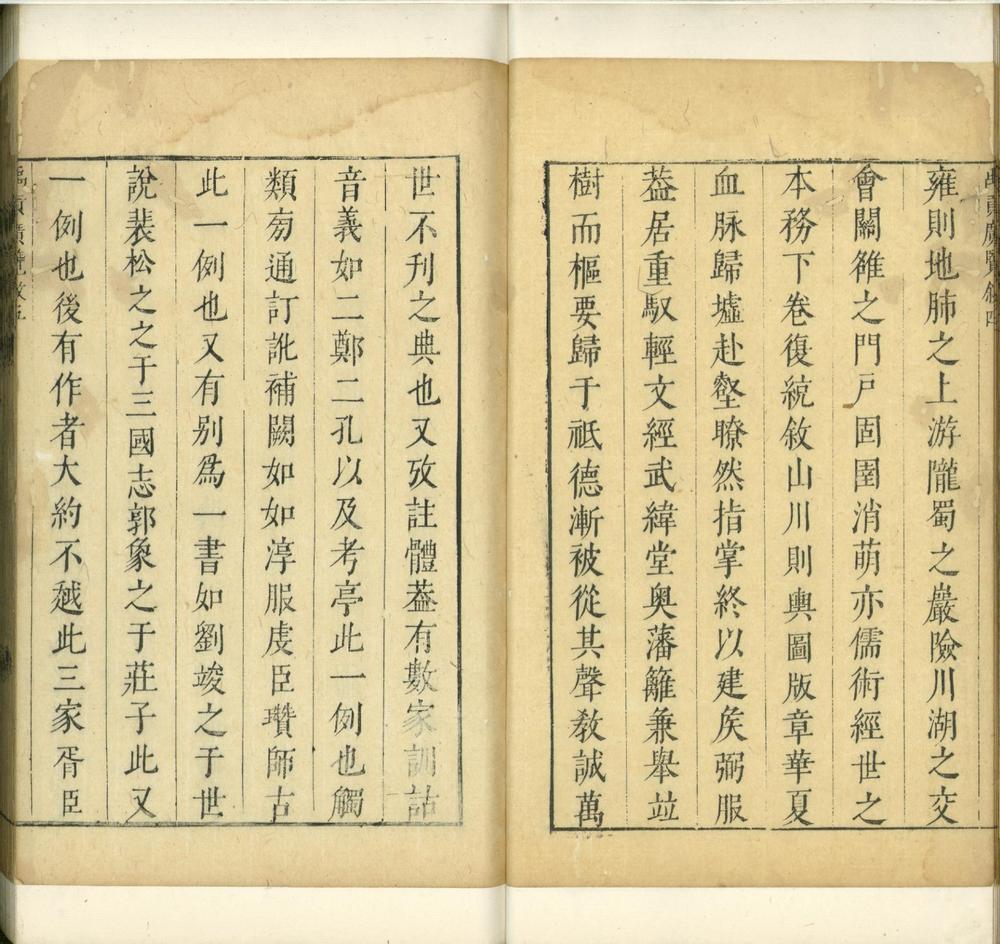 禹貢廣覽敘四
雍則地肺之上游隴蜀之巖險川湖之交
會關雒之門戸固圉消萌亦儒術經世之
本務下卷復統敘山川則輿圖版章華夏
血脉歸墟赴壑瞭然指掌終以建矦弼服
葢居重馭輕文經武緯堂奥藩籬兼舉竝
樹而樞要歸于祇德漸被從其聲敎誠萬
世不刊之典也又攷註體葢有數家訓詁
音義如二鄭二孔以及考亭此一例也觸
類旁通訂訛補闕如如淳服虔臣瓚師古
此一例也又有别爲一書如劉竣之于世
說裴松之之于三國志郭象之于莊子此又
一例也後有作者大約不越此三家胥臣
禹貢廣覽敘五